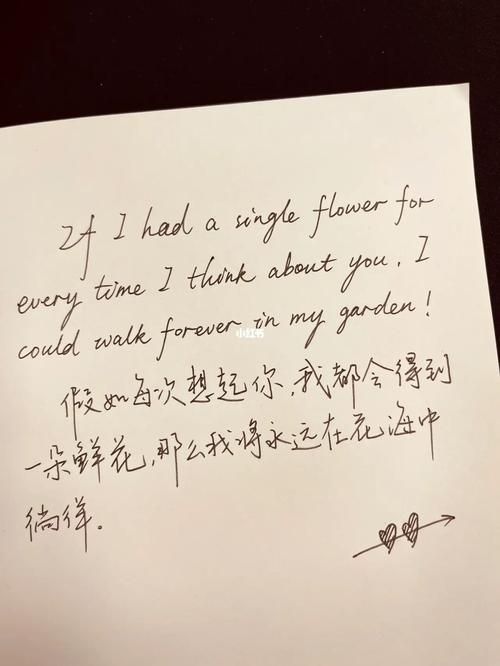 If I had a single flower for
every time I think about you, I
could walk forever in my garden!
小红书
假如每次想起你,我都会得到
一朵鲜花,那么我将永远在花海中
徜徉。